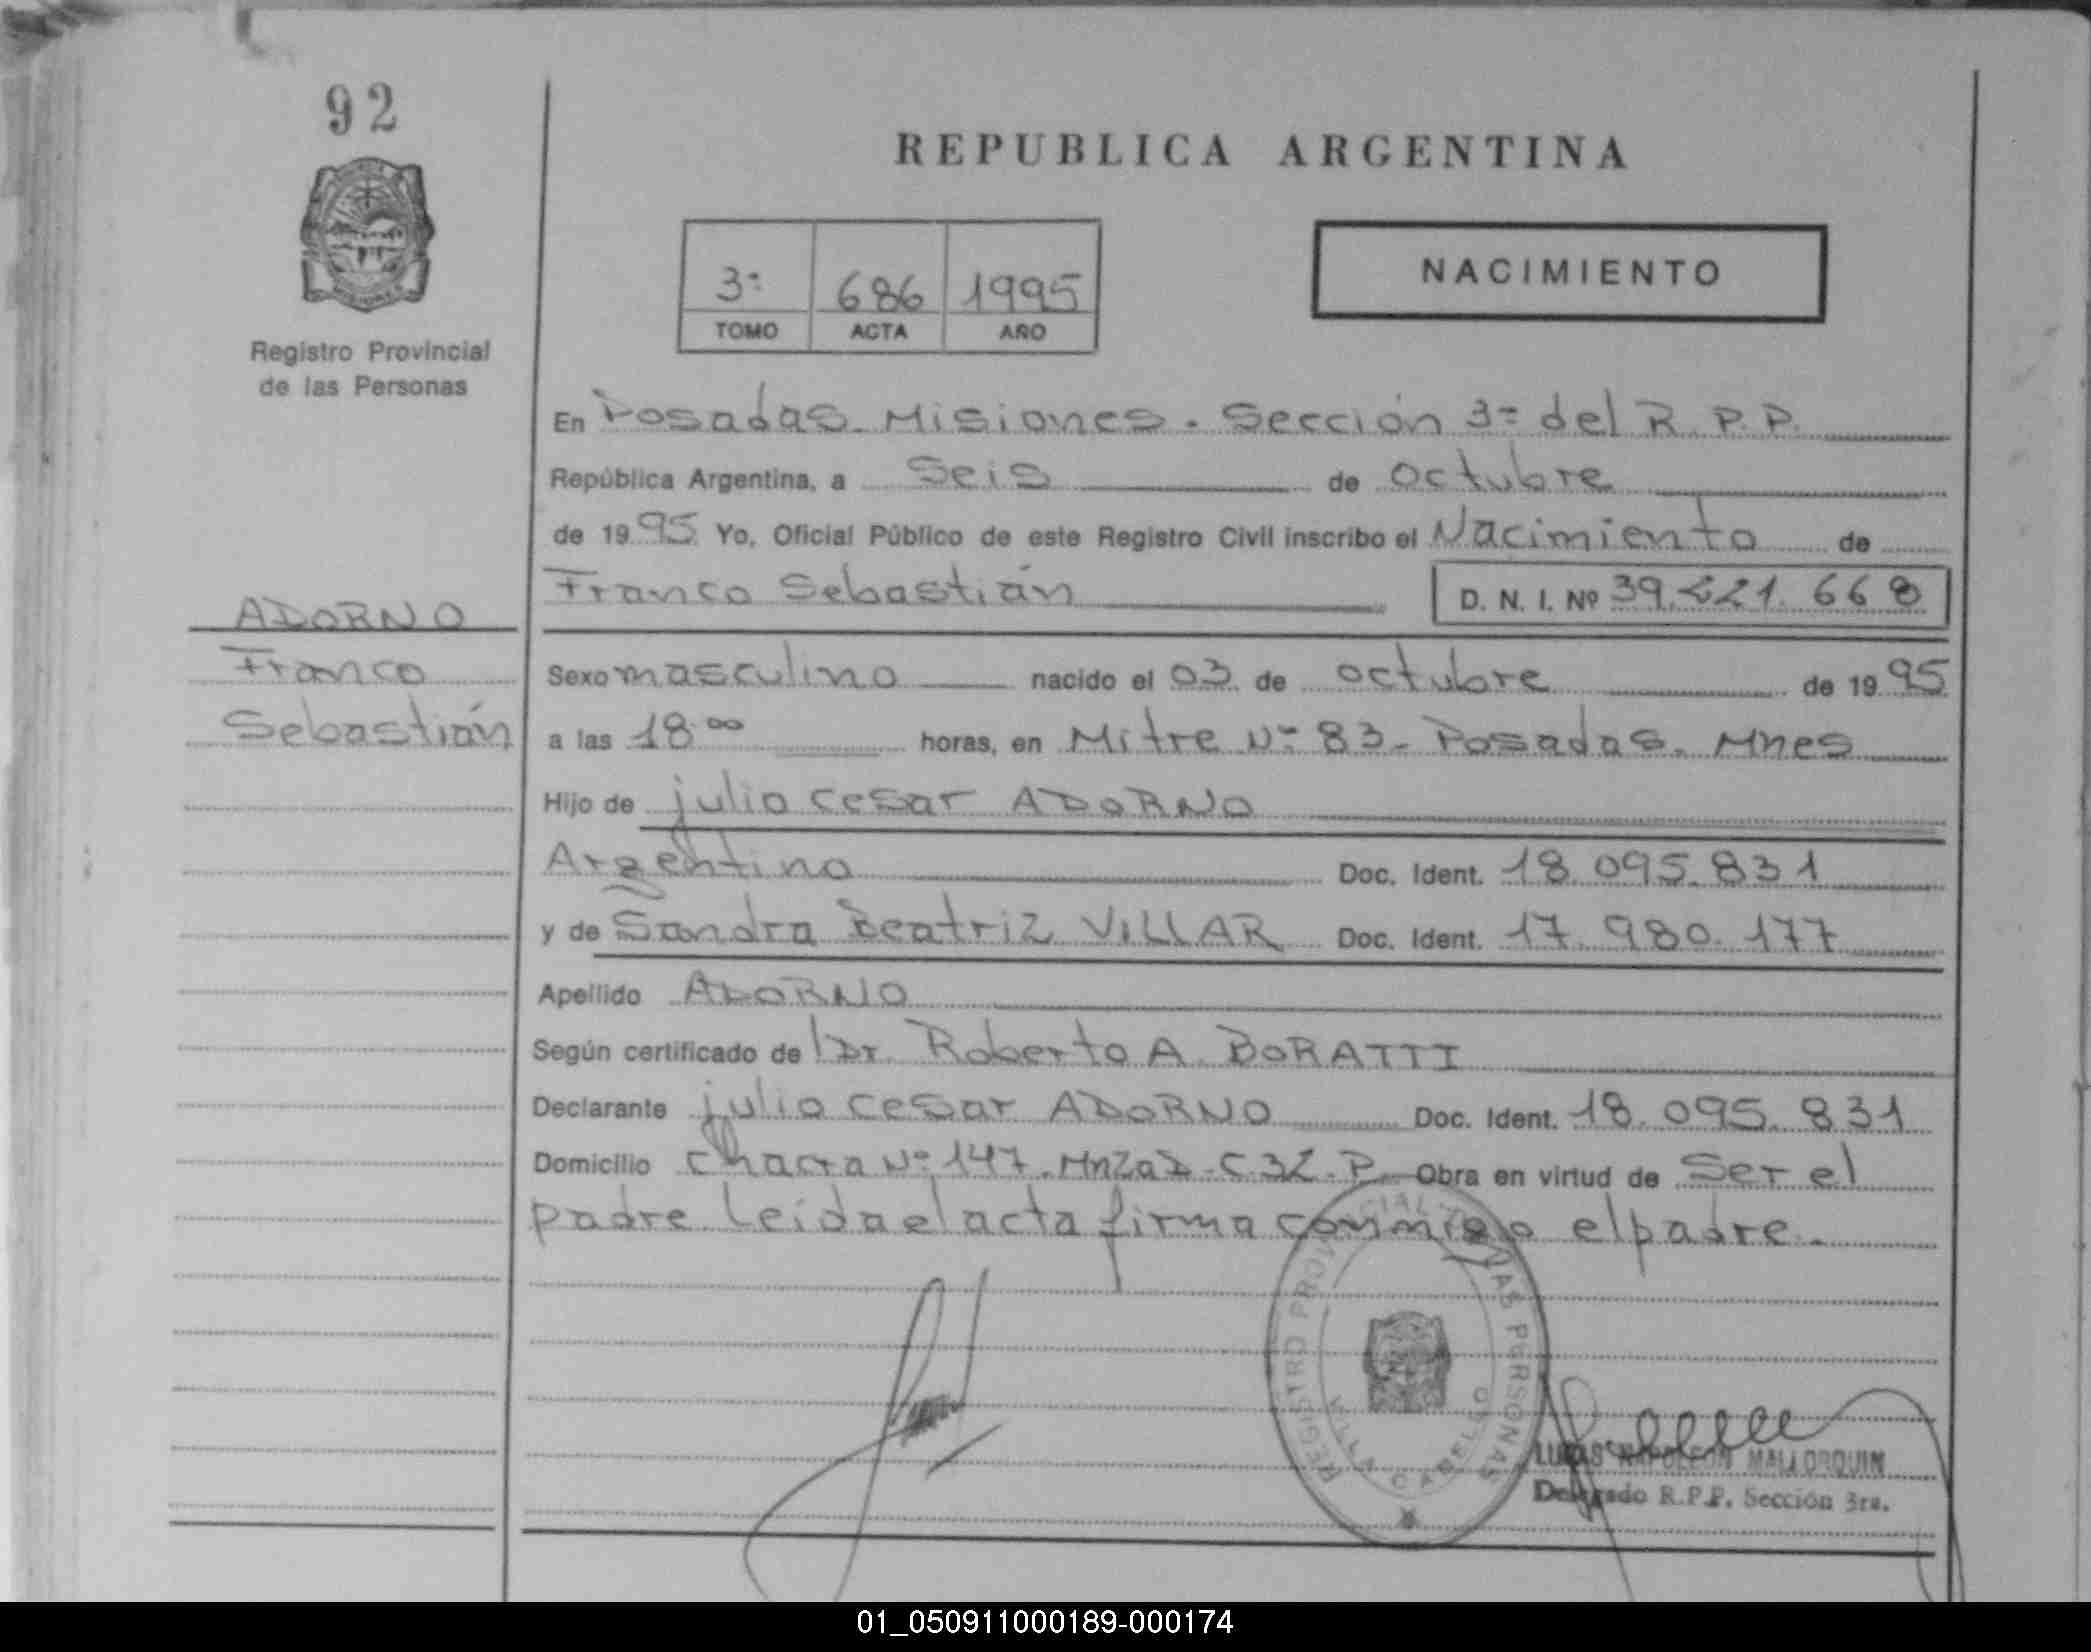 92
REPUBLICA ARGENTINA
3ª 686 1995
TOMO ACTA AÑO
NACIMIENTO
Registro Provincial
de las Personas
En Posadas. Misiones. Sección 3ª del R. P. P.
República Argentina, a Seis de Octubre
de 1995 Yo, Oficial Público de este Registro Civil inscribo el Nacimiento de
Franco Sebastián D. N. I. Nº 39.221.668
ADORNO
Franco
Sebastián
Sexo masculino nacido el 03 de octubre de 1995
a las 18⁰⁰ horas, en Mitre Nº 83 - Posadas. Mnes
Hijo de julio cesar ADORNO
Argentino Doc. Ident. 18.095.831
y de Sandra Beatriz VILLAR Doc. Ident. 17.980.177
Apellido ADORNO
Según certificado de Dr. Roberto A. BORATTI
Declarante julio cesar ADORNO Doc. Ident. 18.095.831
Domicilio Chacra Nº 147. MnzaD - C.32. P. Obra en virtud de Ser el
padre Leída el acta firma conmigo el padre.
REGISTRO PROVINCIAL DE LAS PERSONAS
VILLA CABELLO
LUCAS NAPOLEON MALLORQUIN
Delegado R.P.P. Sección 3ra.
01_050911000189-000174